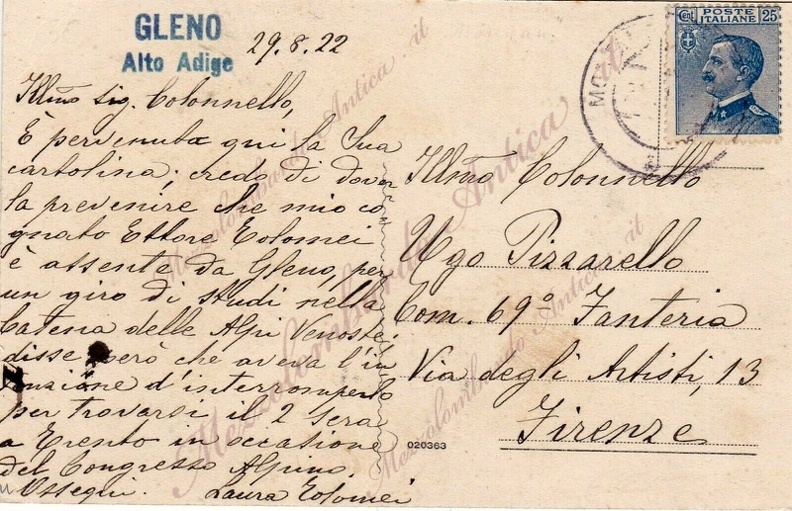 GLENO
Alto Adige
29.8.22
Illmo Sig. Colonnello,
È pervenuta qui la Sua
cartolina; credo di dover
la prevenire che mio co
gnato Ettore Tolomei
è assente da Gleno, per
un giro di studi nella
Catena delle Alpi Venoste;
disse però che aveva l'in
tenzione d'interromperlo
per trovarsi il 2 sera
a Trento in occasione
del Congresso Alpino.
Ossequi. Laura Tolomei
POSTE
ITALIANE
Cent 25
Illmo Colonnello
Ugo Pizzarello
Com. 69° Fanteria
Via degli Artisti, 13
Firenze
020363
Mezzolombardo Antica .it
Mezzolombardo Antica .it
Mezzolombardo Antica .it